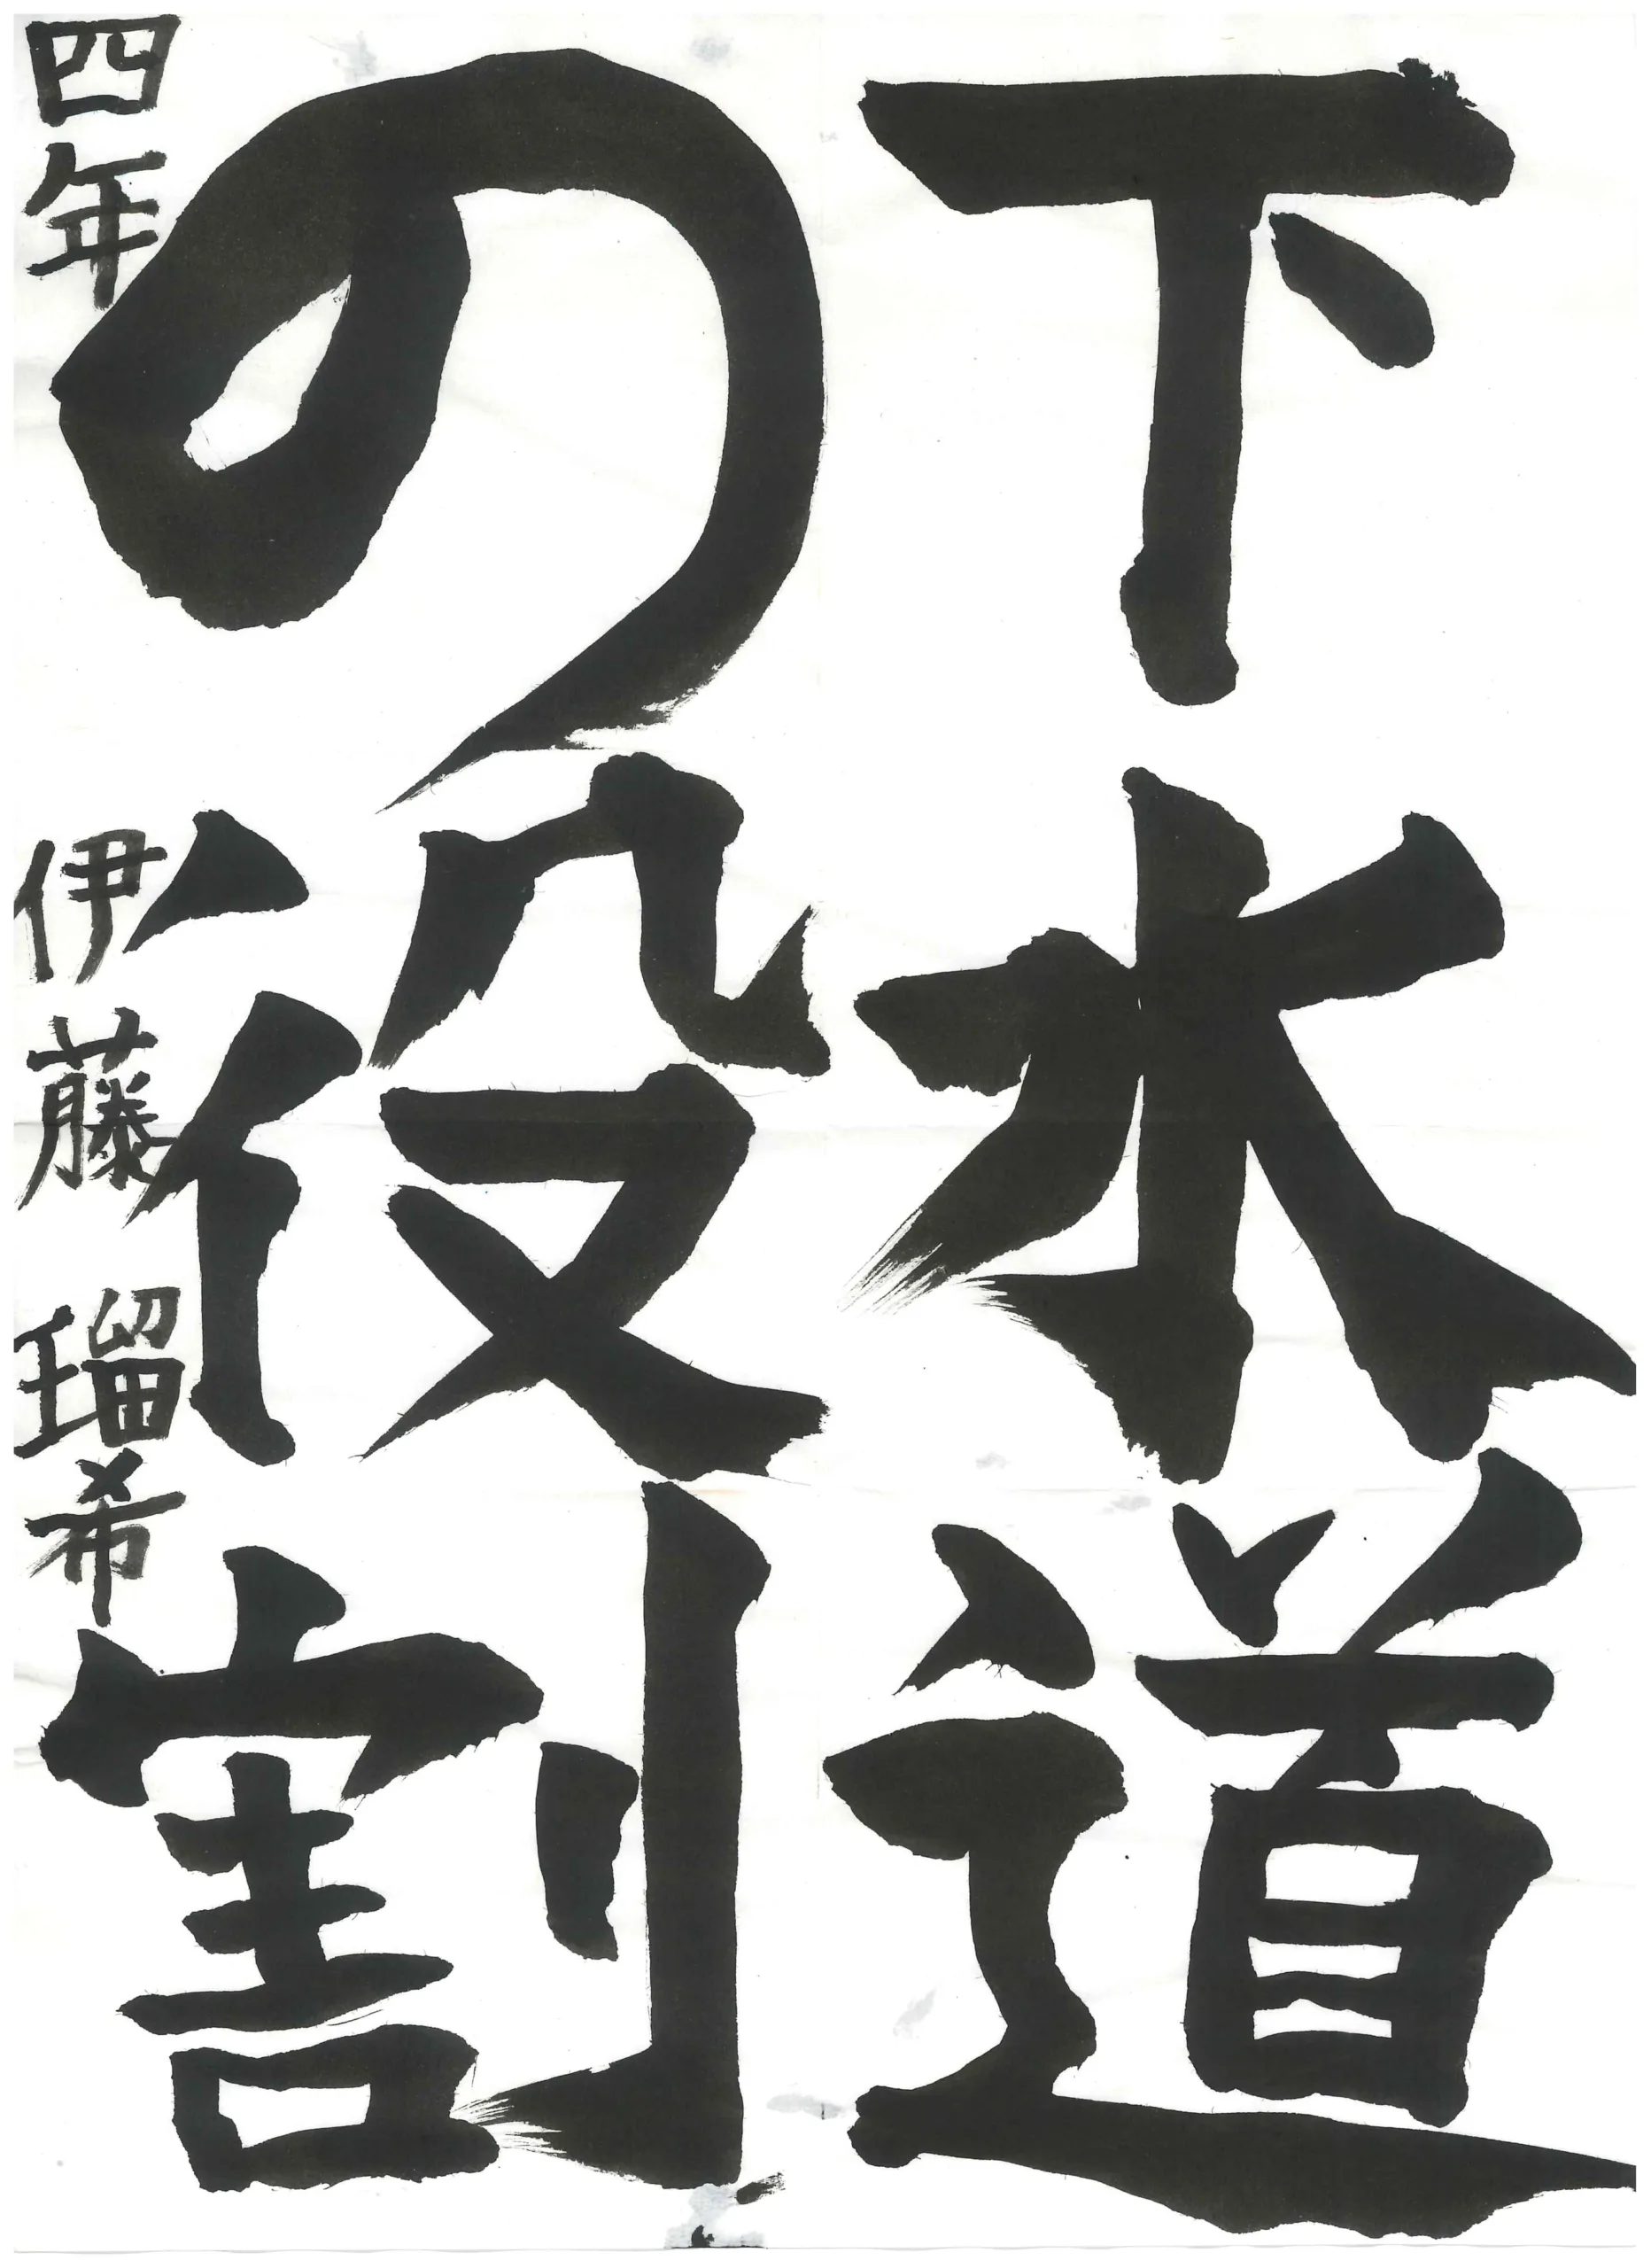 下水道
の役割
四年 伊藤 瑠希